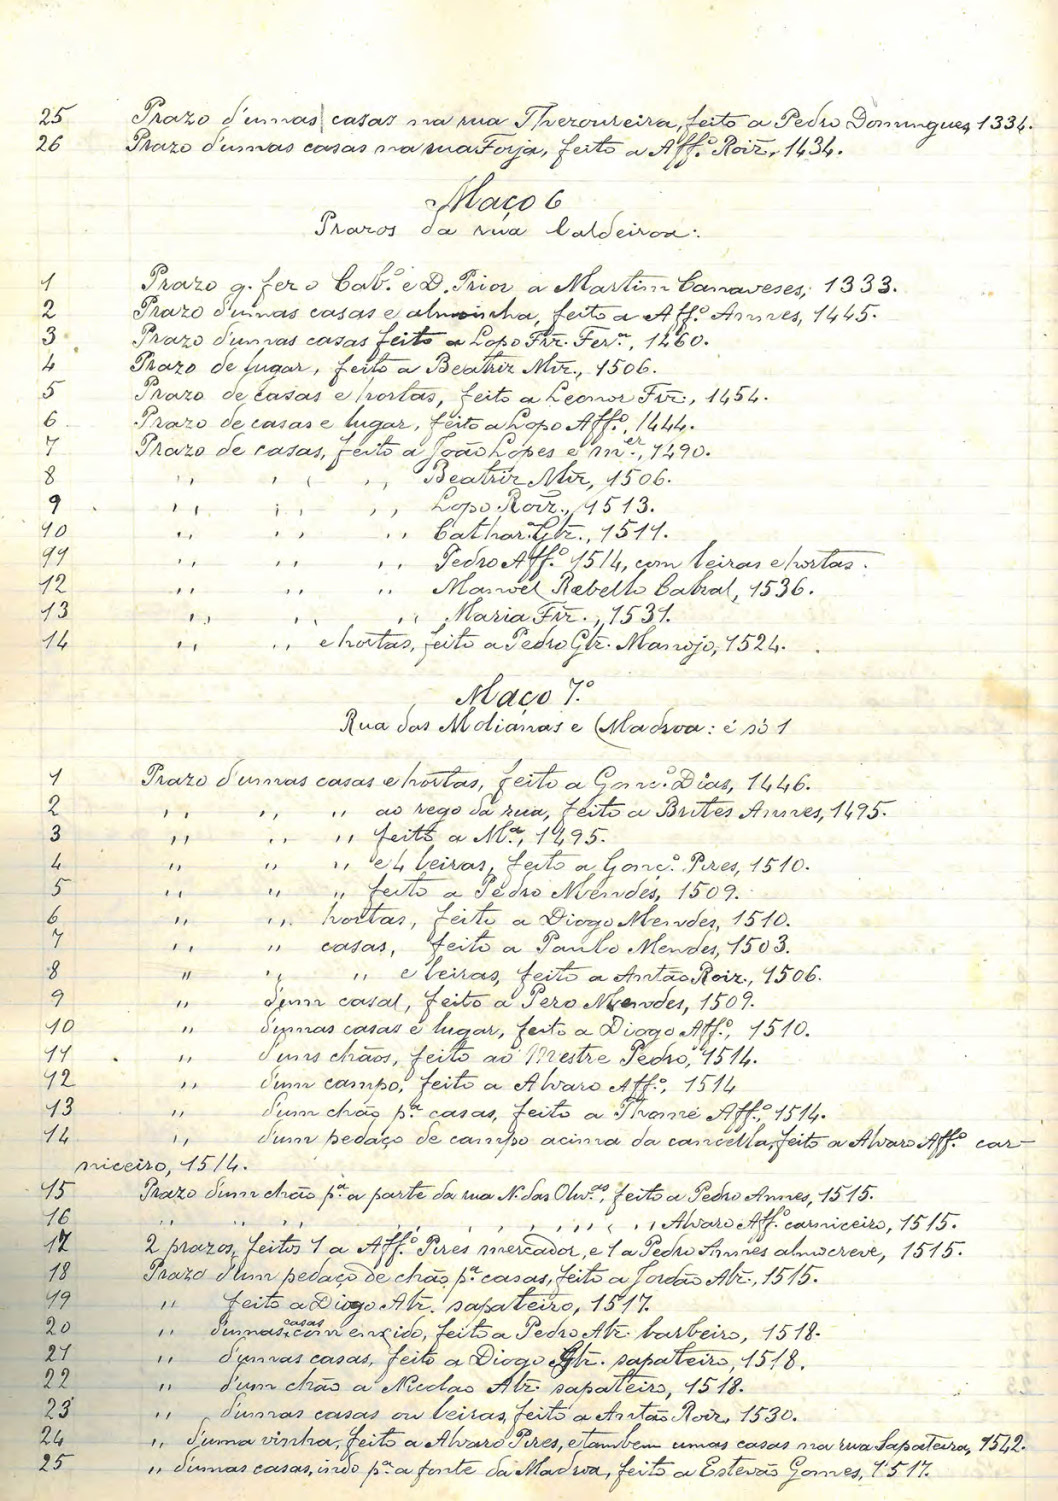 25 Prazo d'umas casas na rua Thezoureira, feito a Pedro Domingues, 1334.
26 Prazo d'umas casas na rua Forja, feito a Aff.º Roiz, 1434.
Maço 6
Prazos da rua Caldeiroa:
1 Prazo q. fez o Cab.º e D. Prior a Martim Canaveses, 1333.
2 Prazo d'umas casas e almoinha, feito a Aff.º Annes, 1445.
3 Prazo d'umas casas feito a Lopo Frz. Ferr.ª, 1460.
4 Prazo de lugar, feito a Beatriz Miz., 1506.
5 Prazo de casas e hortas, feito a Leonor Frz., 1454.
6 Prazo de casas e lugar, feito a Lopo Aff.º, 1444.
7 Prazo de casas, feito a João Lopes e m.er, 1490.
8 ,, ,, ,, Beatriz Miz, 1506.
9 ,, ,, ,, Lopo Roiz., 1513.
10 ,, ,, ,, Cathar.ª Glz., 1511.
11 ,, ,, ,, Pedro Aff.º 1514, com leiras e hortas.
12 ,, ,, ,, Manoel Rebello Cabral, 1536.
13 ,, ,, ,, Maria Frz., 1531.
14 ,, ,, e hortas, feito a Pedro Glz. Manojo, 1524.
Maço 7.º
Rua das Molianas e Madroa: é só 1
1 Prazo d'umas casas e hortas, feito a Gonc.º Dias, 1446.
2 ,, ,, ,, ao rego da rua, feito a Brites Annes, 1495.
3 ,, ,, ,, feito a M.ª, 1495.
4 ,, ,, ,, e 4 leiras, feito a Gonç.º Pires, 1510.
5 ,, ,, ,, feito a Pedro Mendes, 1509.
6 ,, ,, hortas, feito a Diogo Mendes, 1510.
7 ,, ,, casas, feito a Paulo Mendes, 1503.
8 ,, ,, ,, e leiras, feito a Antão Roiz., 1506.
9 ,, d'um casal, feito a Pero Mendes, 1509.
10 ,, d'umas casas e lugar, feito a Diogo Aff.º, 1510.
11 ,, d'uns chãos, feito ao Mestre Pedro, 1514.
12 ,, d'um campo, feito a Alvaro Aff.º, 1514
13 ,, d'um chão p.ª casas, feito a Thomé Aff.º, 1514.
14 ,, d'um pedaço de campo acima da cancella, feito a Alvaro Aff.º car-
niceiro, 1514.
15 Prazo d'um chão p.ª a parte da rua N. das Oliv.as, feito a Pedro Annes, 1515.
16 ,, ,, ,, ,, ,, ,, ,, ,, ,, Alvaro Aff.º carniceiro, 1515.
17 2 prazos, feitos 1 a Aff.º Pires mercador, e 1 a Pedro Annes almocreve, 1515.
18 Prazo d'um pedaço de chão p.ª casas, feito a Jordão Alz., 1515.
19 ,, feito a Diogo Alz. sapateiro, 1517.
20 ,, d'umas casas com enxido, feito a Pedro Alz. barbeiro, 1518.
21 ,, d'umas casas, feito a Diogo Glz. sapateiro, 1518.
22 ,, d'um chão a Nicolao Alz. sapateiro, 1518.
23 ,, d'umas casas ou leiras, feito a Antão Roiz, 1530.
24 ,, d'uma vinha, feito a Alvaro Pires, e tambem umas casas na rua Sapateira, 1542.
25 ,, d'umas casas, indo p.ª a fonte da Madroa, feito a Estevão Gomes, 1517.